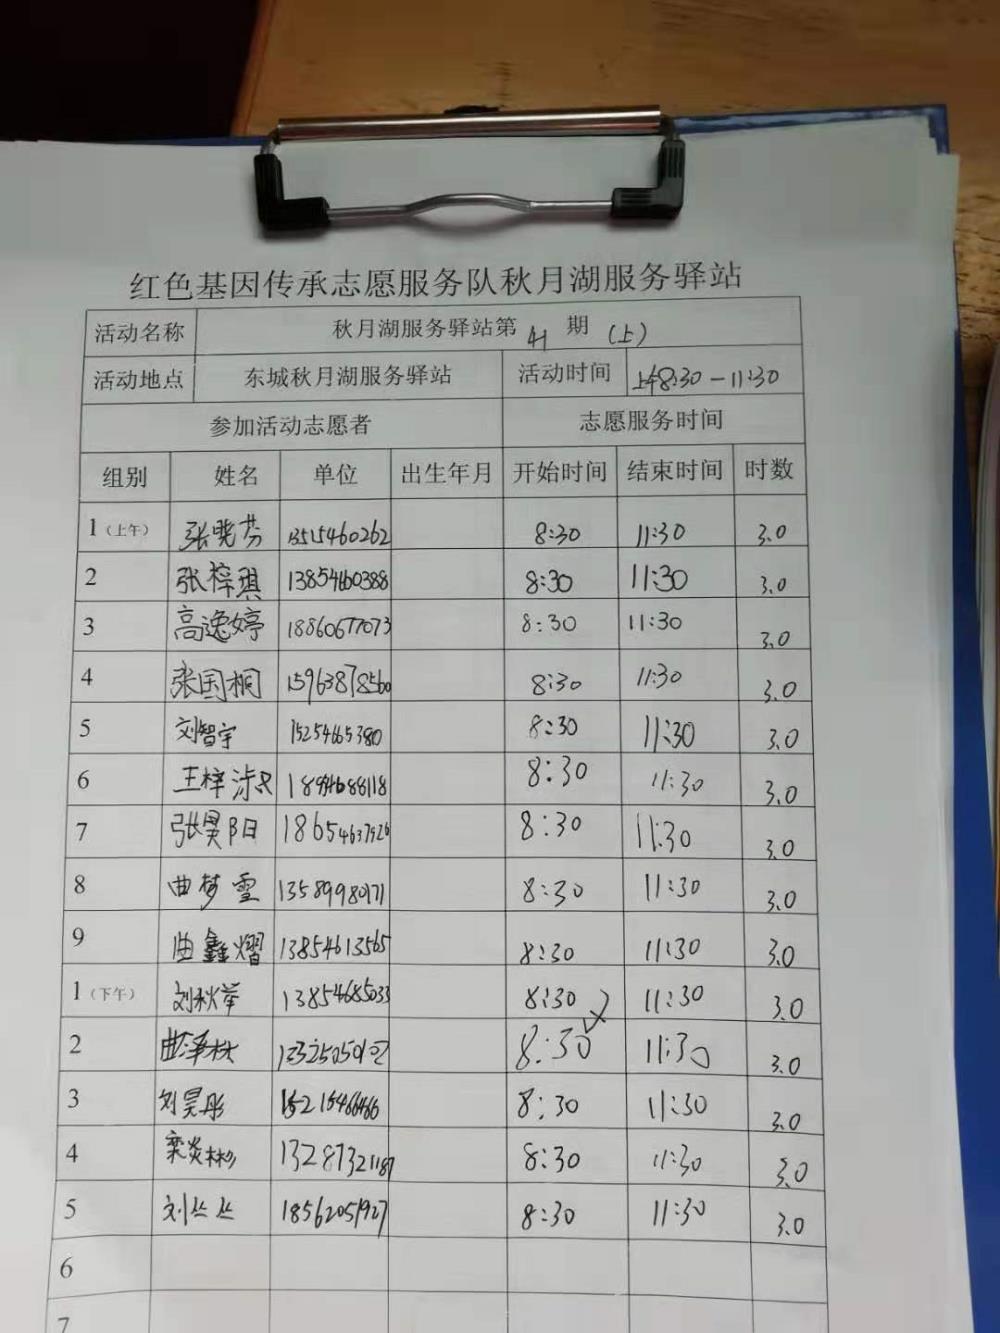 红色基因传承志愿服务队秋月湖服务驿站
活动名称 秋月湖服务驿站第 41 期 (上)
活动地点 东城秋月湖服务驿站 活动时间 上午8:30-11:30
参加活动志愿者 志愿服务时间
组别 姓名 单位 出生年月 开始时间 结束时间 时数
1(上午) 张晓芬 13515460262 8:30 11:30 3.0
2 张梓琪 13854660388 8:30 11:30 3.0
3 高逸婷 18860677073 8:30 11:30 3.0
4 张国桐 15963878560 8:30 11:30 3.0
5 刘智宇 15254665380 8:30 11:30 3.0
6 王梓 8:30 11:30 3.0
7 张昊阳 18654637926 8:30 11:30 3.0
8 曲梦雪 13589980171 8:30 11:30 3.0
9 曲鑫熠 13854613565 8:30 11:30 3.0
1(下午) 刘秋苹 13854685033 8:30 11:30 3.0
2 8:30 11:30 3.0
3 刘昊彤 15215466466 8:30 11:30 3.0
4 栾炎彬 13287321187 8:30 11:30 3.0
5 刘丛丛 18562051927 8:30 11:30 3.0
6
7